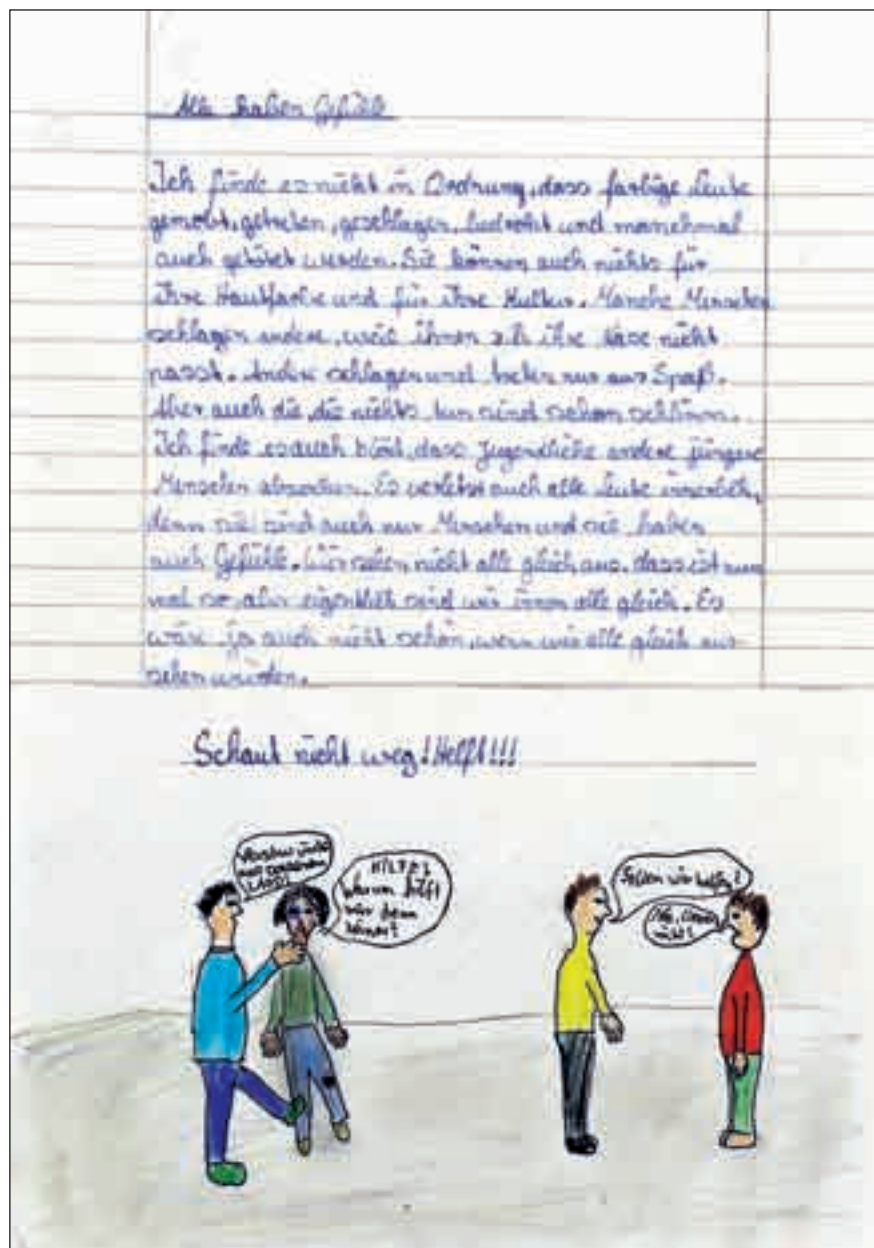 Alle haben Gefühle
Ich finde es nicht in Ordnung, dass farbige Leute
gemobt, getreten, geschlagen, bedroht und manchmal
auch getötet werden. Sie können auch nichts für
ihre Hautfarbe und für ihre Kultur. Manche Menschen
schlagen andere, weil ihnen z.B. ihre Nase nicht
passt. Andere schlagen und treten nur aus Spaß.
Aber auch die, die nichts tun sind schon schlimm.
Ich finde es auch blöd, dass Jugendliche andere jüngere
Menschen abzocken. Es verletzt auch alle Leute innerlich,
denn sie sind auch nur Menschen und sie haben
auch Gefühle. Wir sehen nicht alle gleich aus, dass ist nun
mal so, aber eigentlich sind wir innen alle gleich. Es
wäre ja auch nicht schön, wenn wir alle gleich aus-
sehen würden.
Schaut nicht weg! Helft!!!
LAND!
HILFE!
Warum hilft
mir denn
keiner?
Sollen wir helfen?
Nö, lieber
nicht!